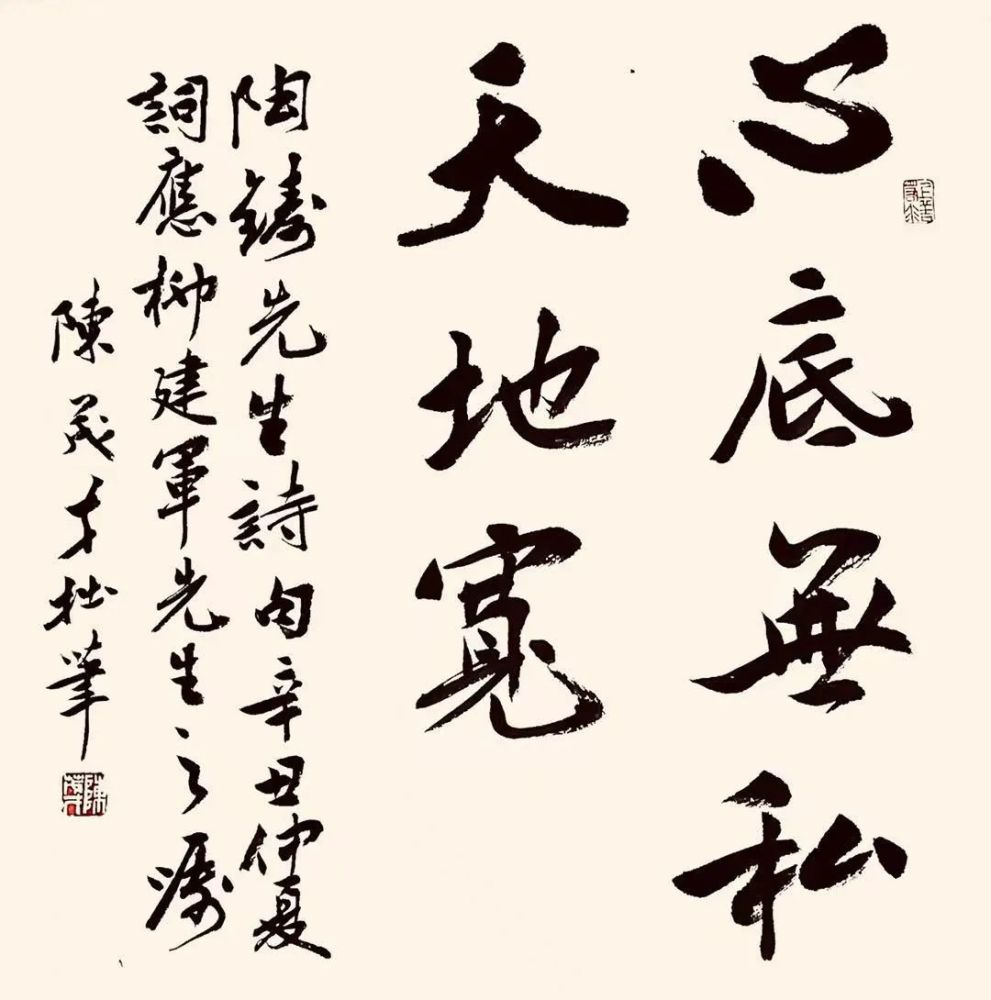 心底無私
天地寬
陶鑄先生詩句辛丑仲夏
詞應柳建軍先生之濤
陳茂才拙筆